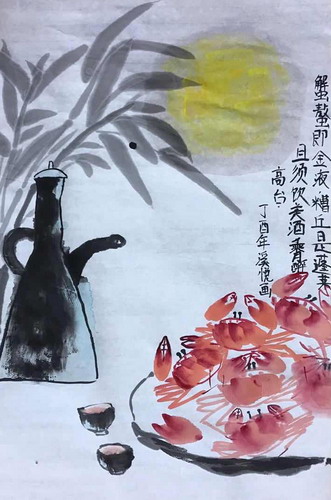 蟹螯即金液.糟丘是蓬莱
且须饮美酒乘月醉
高台.
丁酉年溪悦画